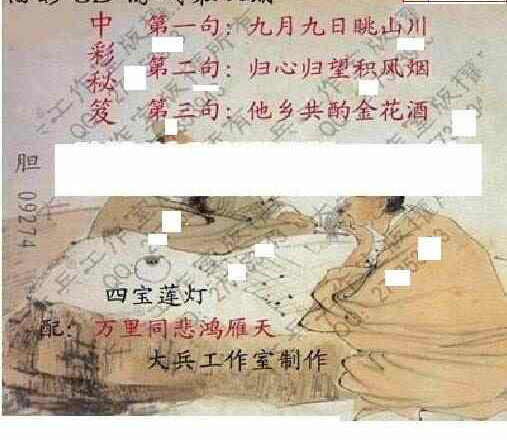 中彩秘笈
第一句：九月九日眺山川
第二句：归心归望积风烟
第三句：他乡共酌金花酒
胆 09274
四宝莲灯
配：万里同悲鸿雁天
大兵工作室制作